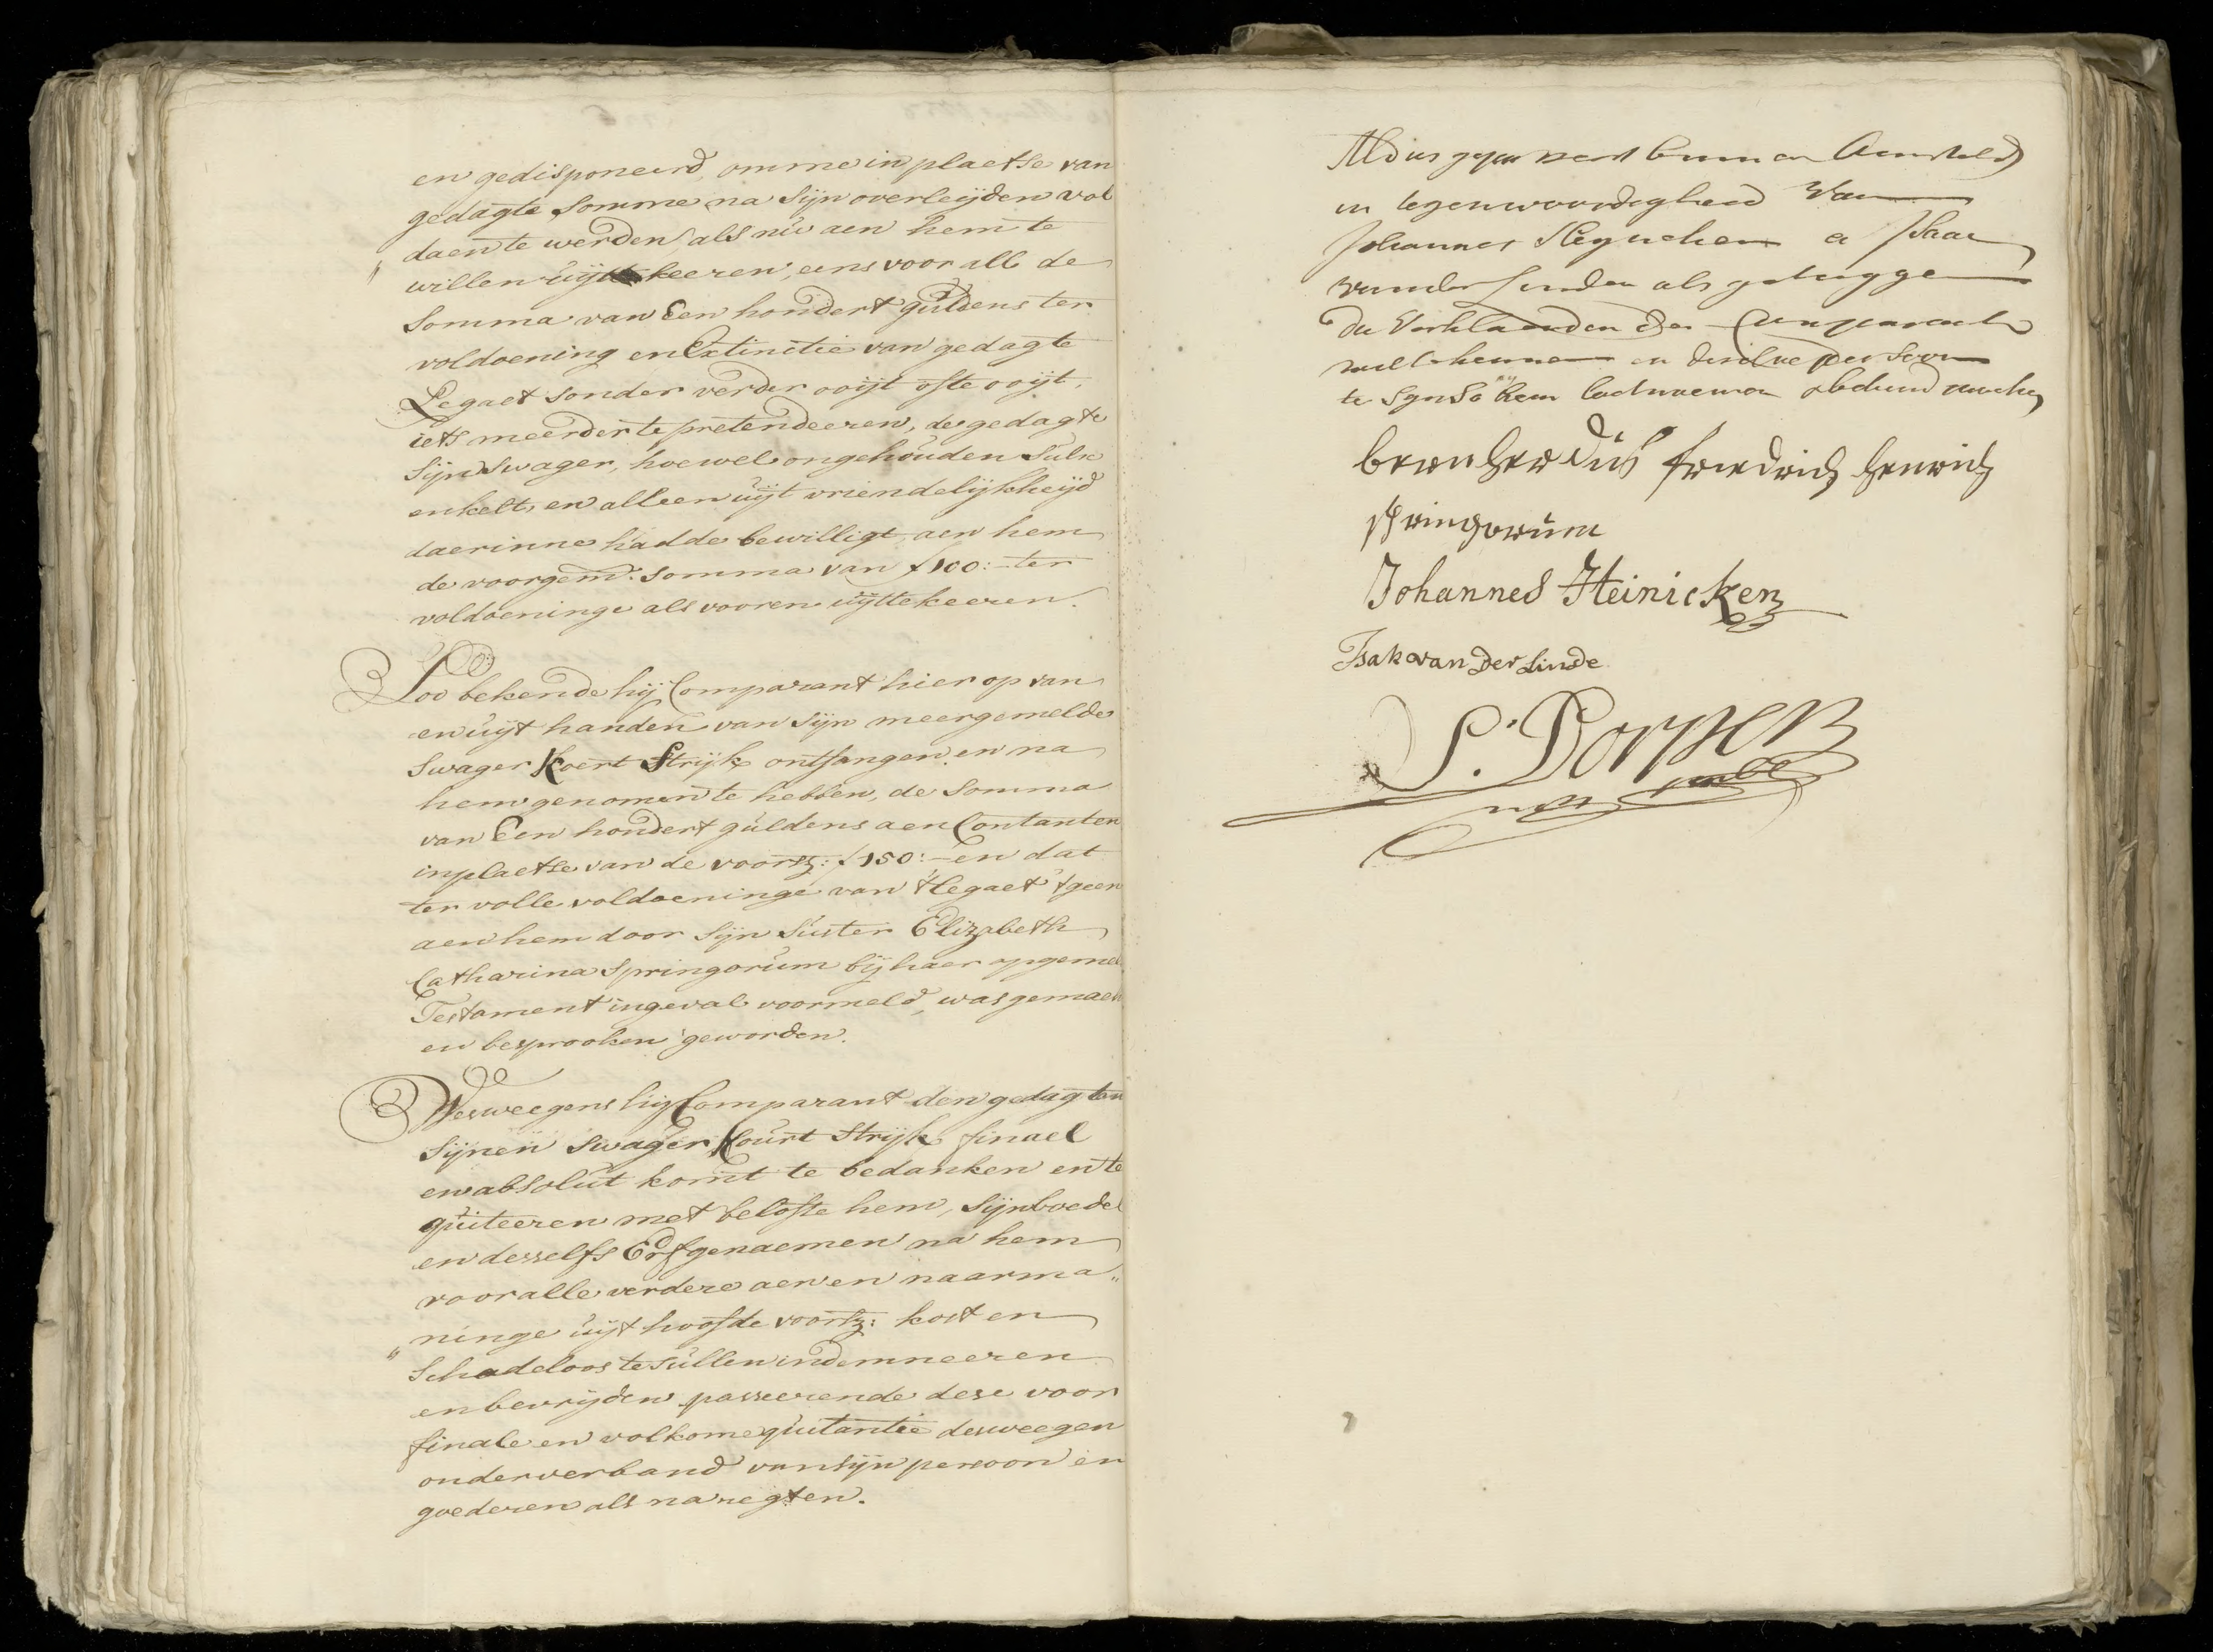 en gedisponeerd, omme in plaetse van
gedagte somme na sijn overleijden vol
daen te werden als nu aen hem te
„ willen uijtkeeren, eens voor all de
Somma van Een hondert guldens ter
voldoening en Extinctie van gedagte
Legaet sonder verder ooijt ofte ooijt,
iets meerder te pretendeeren, de gedagte
Sijn Swager, hoewel ongehouden Sulx
enkelt, en alleen uijt vriendelijkheijd
daerinne hadde bewilligt aen hem
de voorgem: somma van ƒ100:- ter
voldoeninge als vooren uijttekeeren.
Soo bekende hij Comparant hier op van
en uijt handen van Sijn meergemelde
Swager Koert Strijk ontfangen en na
hem genomen te hebben, de Somma
van Een hondert guldens aen Contanten
inplaetse van de voorsz: ƒ150:- en dat
ter volle voldoeninge van 't legaet 't geen
aen hem door Sijn Suster Elizabeth
Catharina Springorum bij haer opgemel
Testament ingeval voormeld, was gemaek
en besprooken geworden.
Wesweegens hij Comparant den gedagten
Sijnen Swager Court Strijk finael
en absolut komt te bedanken en te
quiteeren met belofte hem, Sijn boedel
en desselfs Erfgenaemen na hem
voor alle verdere aen en naarma„
„ ninge uijt hoofde voorsz: kost en
Schadeloos te sullen indemneeren
en bevrijden passeerende dese voor
finale en volkome quitantie desweegen
onder verband van sijn persoon en
goederen als na regten.
Aldus gepasseert binnen Amsteld
in tegenwoordigheid van
Johannes Heijneken en Isaac
vander Linden als getuijgen
Die Verklaarden den Comparant
wel te kennen en deselve persoon
te sijn
bernherdus friedrich henrich
springorum
Johannes Heinicken
Isak van der Linde
S. Dorper
nots publ